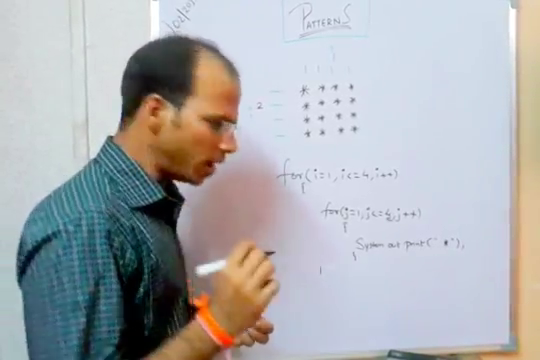 /02/20
PATTERNS
* * * *
2 * * * *
* * * *
* * * *
for(i=1,i<=4,i++)
{
for(j=1,j<=4,j++)
{
System out print(" *"),
}